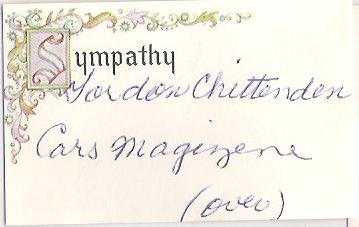 Sympathy
Gordon Chittenden
Cars Magizene
(over)